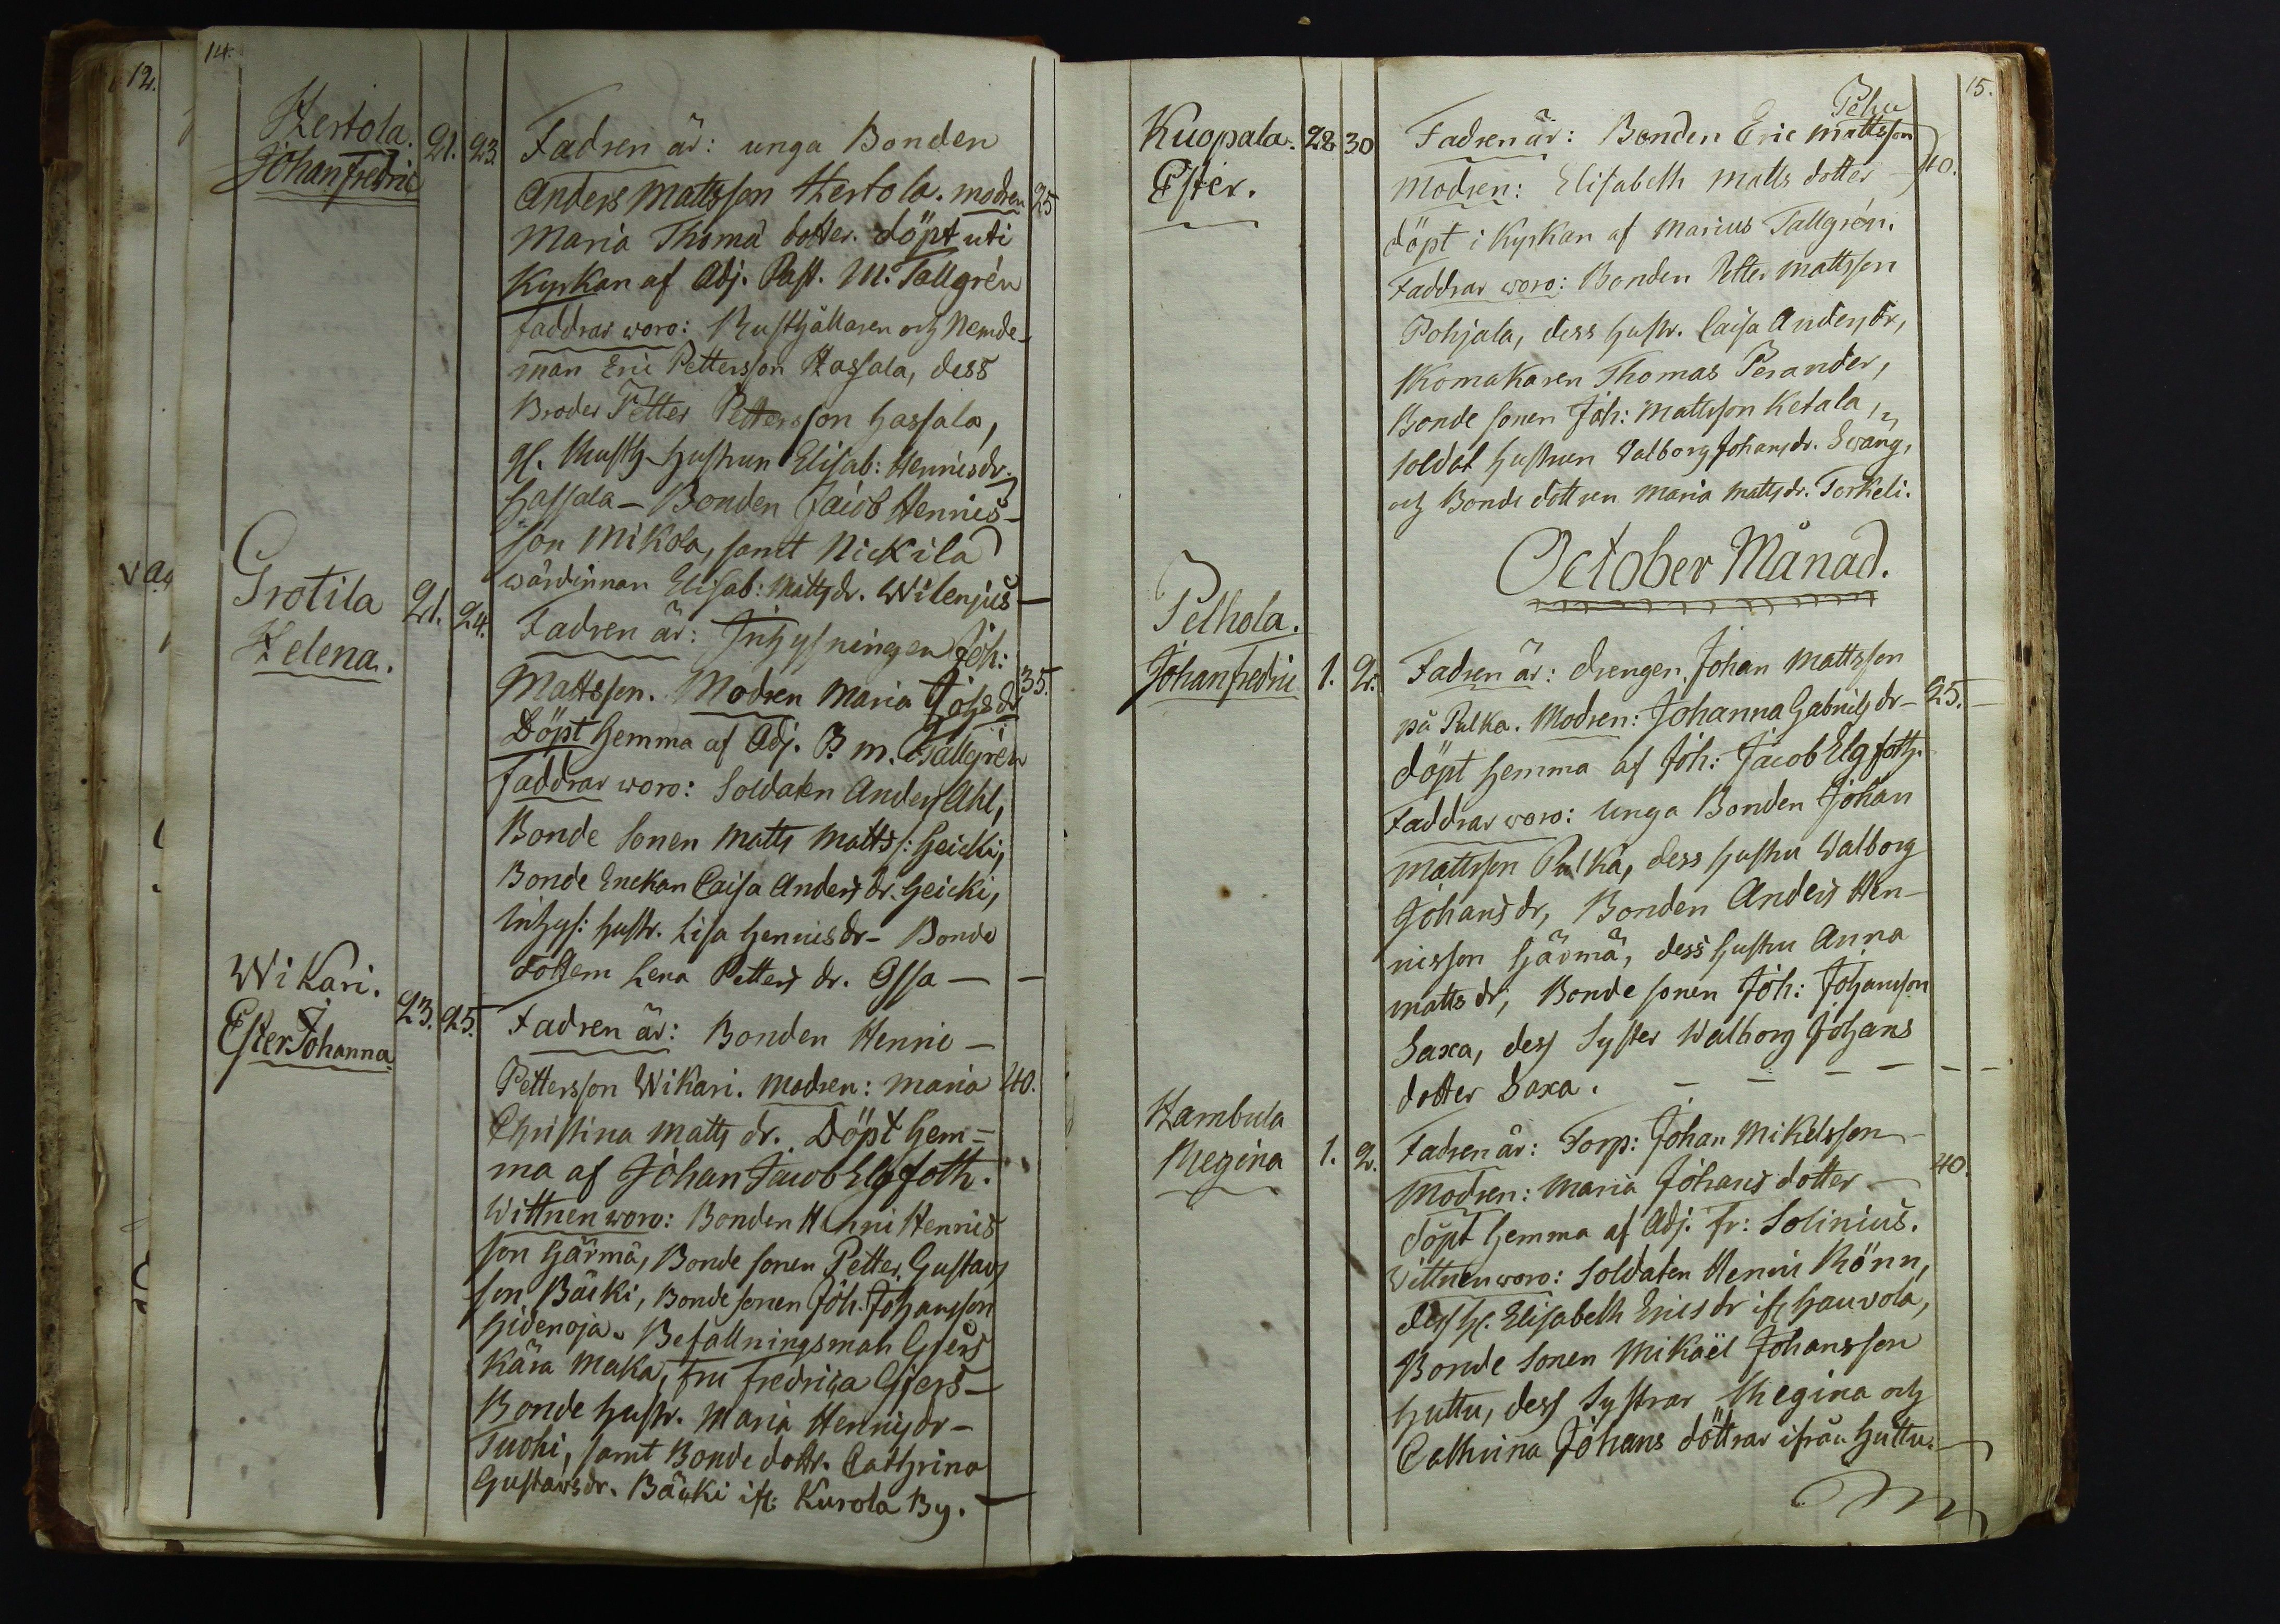 12.
14.
Hertola.
Johan Fredric
21. 23.
Fadren är: unga Bonden
Anders Mattsson Hertola. modren 25
Maria Thoma dotter. döpt uti
Kyrkan af Adj. Past. M. Tallgrén
faddrar woro: Rusthållaren och Nemde-
man Eric Pettersson Hassala, dess
Broder Petter Pettersson Hassala,
gl. Rusth. hustrun Elisab: Hennisdr.
Hassala - Bonden Jacob Hennis-
son Mikola, samt Nickila
wärdinnan Elisab: Mattsdr. Wilenius -
Grotila
Helena.
21. 24.
Fadren är: Inhysningen Joh:
Mattsson. Modren Maria Johsdr 35.
Döpt hemma af Adj. P. M. Tallgrén
Faddrar woro: Soldaten Anders Ahl,
Bonde Sonen Matts Matts: Heicki,
Bonde Enckan Caisa Anders dr. Heicki,
Inhys: hustr. Lisa Hennisdr - Bonde
dottern Lena Petters dr. Ossa - -
Wikari.
Ester Johanna
23. 25.
Fadren är: Bonden Henric -
Pettersson Wikari. Modren: Maria 40.
Christina Matts dr. Döpt hem-
ma af Johan Jacob Elgfoth.
Wittnen woro: Bonden Henric Hennis
son Härmä, Bonde sonen Petter Gustavs
son Bäcki, Bonde sonen Joh: Johansson
Hidenoja. Befallningsman Gjers
Kära Maka, Fru Fredrica Gjers -
Bonde hustr. Maria Hennisdr -
Tuohi, samt Bonde dottr. Cathrina
Gustavsdr. Bäcki ifr: Kurola By. -
15.
Kuopala.
Ester.
28 30
Pehu
Fadren är: Bonden Eric Mattsson
Modren: Elisabeth Matts dotter - 40.
döpt i Kyrkan af Marius Tallgrén.
Faddrar woro: Bonden Petter Mattsson
Pohjala, dess hustr. Caisa Andersdr,
Skomakaren Thomas Perander,
Bonde sonen Joh: Mattsson Ketala,
soldat hustrun Valborg Johansdr. Swäng,
och Bonde dottren Maria Mattsdr. Torkeli.
October Månad.
Pelhola.
Johan Fredric
1. 2.
Fadren är: drengen Johan Mattsson
på Pulka. Modren: Johanna Gabrielsdr - 25. -
döpt hemma af Joh: Jacob Elgfoth.
Faddrar woro: Unga Bonden Johan
Mattsson Pulka, dess hustru Walborg
Johansdr, Bonden Anders Hen-
nisson Härmä, dess hustru Anna
Matts dr, Bonde sonen Joh: Johansson
Saxa, dess Syster Walborg Johans
dotter Saxa. - - - - - -
Hambula
Regina
1. 2.
Fadren är: Torp: Johan Mikelsson -
Modren: Maria Johans dotter - 40.
döpt hemma af Adj. Fr: Solinius.
Wittnen woro: Soldaten Henric Rönn,
dess h. Elisabeth Ericsdr ifr Hauvola,
Bonde Sonen Mikaël Johansson
Huttu, dess Systrar Regina och
Cathrina Johans döttrar ifrån Huttu. -